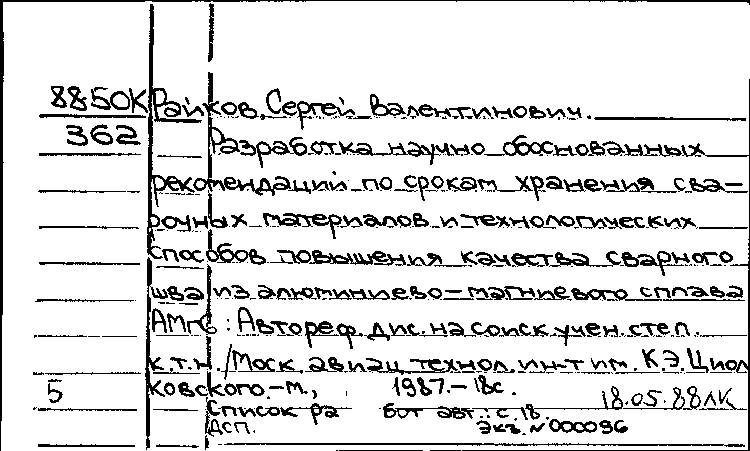 8850К Райков, Сергей Валентинович.
362 Разработка научно обоснованных
рекомендаций по срокам хранения сва-
рочных материалов и технологических
способов повышения качества сварного
шва из алюминиево-магниевого сплава
АМг6: Автореф. дис. на соиск. учен. степ.
к.т.н. /Моск. авиац. технол. ин-т им. К.Э. Циол
5 ковского.-М., 1987.-18с. 18.05.88ЛК
Список ра бот авт.: с. 18.
ДСП. Экз. N000096